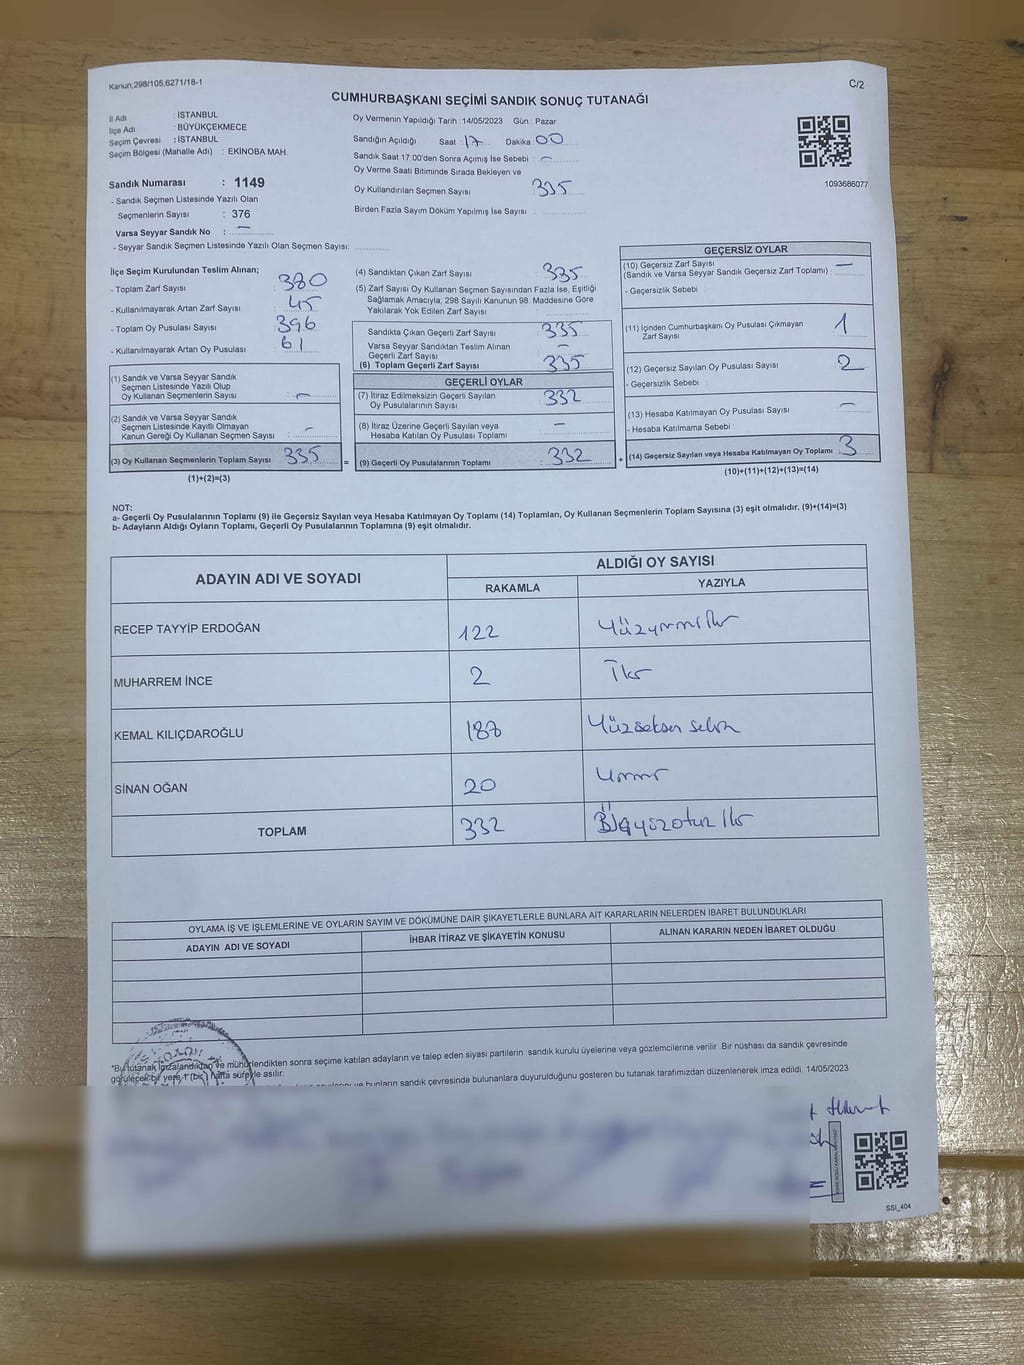 Kanun;298/105,6271/18-1
C/2
CUMHURBAŞKANI SEÇİMİ SANDIK SONUÇ TUTANAĞI
İl Adı : İSTANBUL
İlçe Adı : BÜYÜKÇEKMECE
Seçim Çevresi : İSTANBUL
Seçim Bölgesi (Mahalle Adı) : EKİNOBA MAH.
Sandık Numarası : 1149
- Sandık Seçmen Listesinde Yazılı Olan
Seçmenlerin Sayısı : 376
Varsa Seyyar Sandık No : —
- Seyyar Sandık Seçmen Listesinde Yazılı Olan Seçmen Sayısı:
Oy Vermenin Yapıldığı Tarih : 14/05/2023 Gün : Pazar
Sandığın Açıldığı Saat : 17 Dakika 00
Sandık Saat 17:00'den Sonra Açımış İse Sebebi : —
Oy Verme Saati Bitiminde Sırada Bekleyen ve
Oy Kullandırılan Seçmen Sayısı 335
Birden Fazla Sayım Döküm Yapılmış İse Sayısı :
1093686077
İlçe Seçim Kurulundan Teslim Alınan;
- Toplam Zarf Sayısı : 380
- Kullanılmayarak Artan Zarf Sayısı : 45
- Toplam Oy Pusulası Sayısı : 396
- Kullanılmayarak Artan Oy Pusulası : 61
(1) Sandık ve Varsa Seyyar Sandık
Seçmen Listesinde Yazılı Olup
Oy Kullanan Seçmenlerin Sayısı : —
(2) Sandık ve Varsa Seyyar Sandık
Seçmen Listesinde Kayıtlı Olmayan
Kanun Gereği Oy Kullanan Seçmen Sayısı : —
(3) Oy Kullanan Seçmenlerin Toplam Sayısı 335
(1)+(2)=(3)
=
(4) Sandıktan Çıkan Zarf Sayısı : 335
(5) Zarf Sayısı Oy Kullanan Seçmen Sayısından Fazla İse, Eşitliği
Sağlamak Amacıyla; 298 Sayılı Kanunun 98. Maddesine Göre
Yakılarak Yok Edilen Zarf Sayısı :
Sandıkta Çıkan Geçerli Zarf Sayısı : 335
Varsa Seyyar Sandıktan Teslim Alınan
Geçerli Zarf Sayısı : —
(6) Toplam Geçerli Zarf Sayısı : 335
GEÇERLİ OYLAR
(7) İtiraz Edilmeksizin Geçerli Sayılan
Oy Pusulalarının Sayısı : 332
(8) İtiraz Üzerine Geçerli Sayılan veya
Hesaba Katılan Oy Pusulası Toplamı : —
(9) Geçerli Oy Pusulalarının Toplamı : 332
+
GEÇERSİZ OYLAR
(10) Geçersiz Zarf Sayısı
(Sandık ve Varsa Seyyar Sandık Geçersiz Zarf Toplamı) : —
- Geçersizlik Sebebi :
(11) İçinden Cumhurbaşkanı Oy Pusulası Çıkmayan
Zarf Sayısı : 1
(12) Geçersiz Sayılan Oy Pusulası Sayısı : 2
- Geçersizlik Sebebi :
(13) Hesaba Katılmayan Oy Pusulası Sayısı : —
- Hesaba Katılmama Sebebi :
(14) Geçersiz Sayılan veya Hesaba Katılmayan Oy Toplamı : 3
(10)+(11)+(12)+(13)=(14)
NOT:
a- Geçerli Oy Pusulalarının Toplamı (9) ile Geçersiz Sayılan veya Hesaba Katılmayan Oy Toplamı (14) Toplamları, Oy Kullanan Seçmenlerin Toplam Sayısına (3) eşit olmalıdır. (9)+(14)=(3)
b- Adayların Aldığı Oyların Toplamı, Geçerli Oy Pusulalarının Toplamına (9) eşit olmalıdır.
ADAYIN ADI VE SOYADI
ALDIĞI OY SAYISI
RAKAMLA YAZIYLA
RECEP TAYYİP ERDOĞAN 122 Yüzyirmi İki
MUHARREM İNCE 2 İki
KEMAL KILIÇDAROĞLU 188 Yüzseksen sekiz
SİNAN OĞAN 20 Yirmi
TOPLAM 332 Üçyüzotuz İki
OYLAMA İŞ VE İŞLEMLERİNE VE OYLARIN SAYIM VE DÖKÜMÜNE DAİR ŞİKAYETLERLE BUNLARA AİT KARARLARIN NELERDEN İBARET BULUNDUKLARI
ADAYIN ADI VE SOYADI İHBAR İTİRAZ VE ŞİKAYETİN KONUSU ALINAN KARARIN NEDEN İBARET OLDUĞU
*Bu tutanak imzalandıktan ve mühürlendikten sonra seçime katılan adayların ve talep eden siyasi partilerin sandık kurulu üyelerine veya gözlemcilerine verilir .Bir nüshası da sandık çevresinde
görülecek bir yere 1 (bir) hafta süreyle asılır.
ve bunların sandık çevresinde bulunanlara duyurulduğunu gösteren bu tutanak tarafımızdan düzenlenerek imza edildi. 14/05/2023
SSI_404